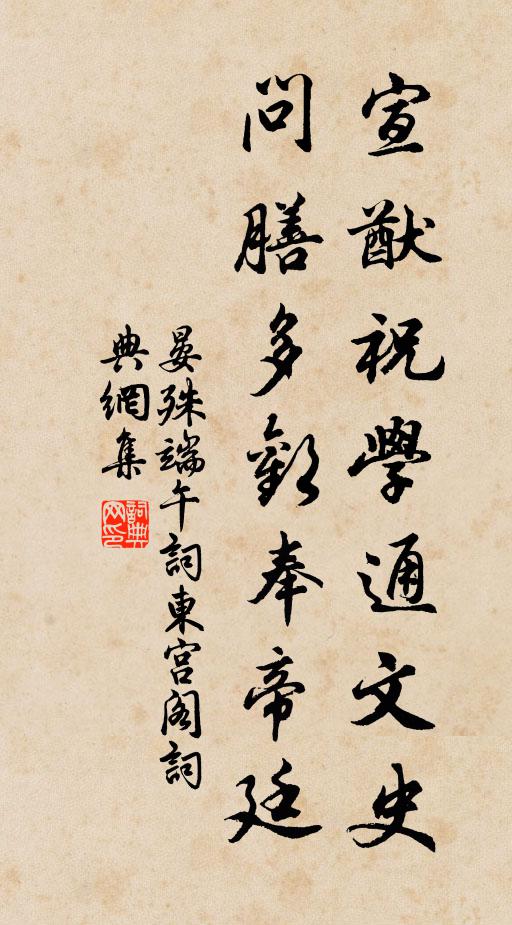 宣猷祝學通文史
問膳多歡奉帝廷
晏殊端午詞東宮閣詞
典網集
詞典网印